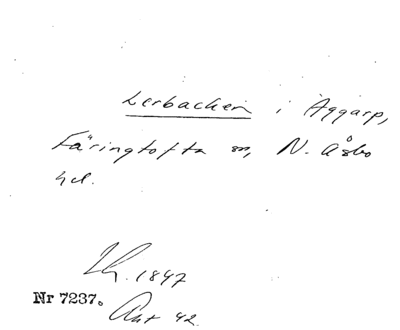 Lerbacken i Aggarp,
Färingtofta sn, N. Åsbo
hd.
Th. 1847
Nr 7237.
Ant 42.